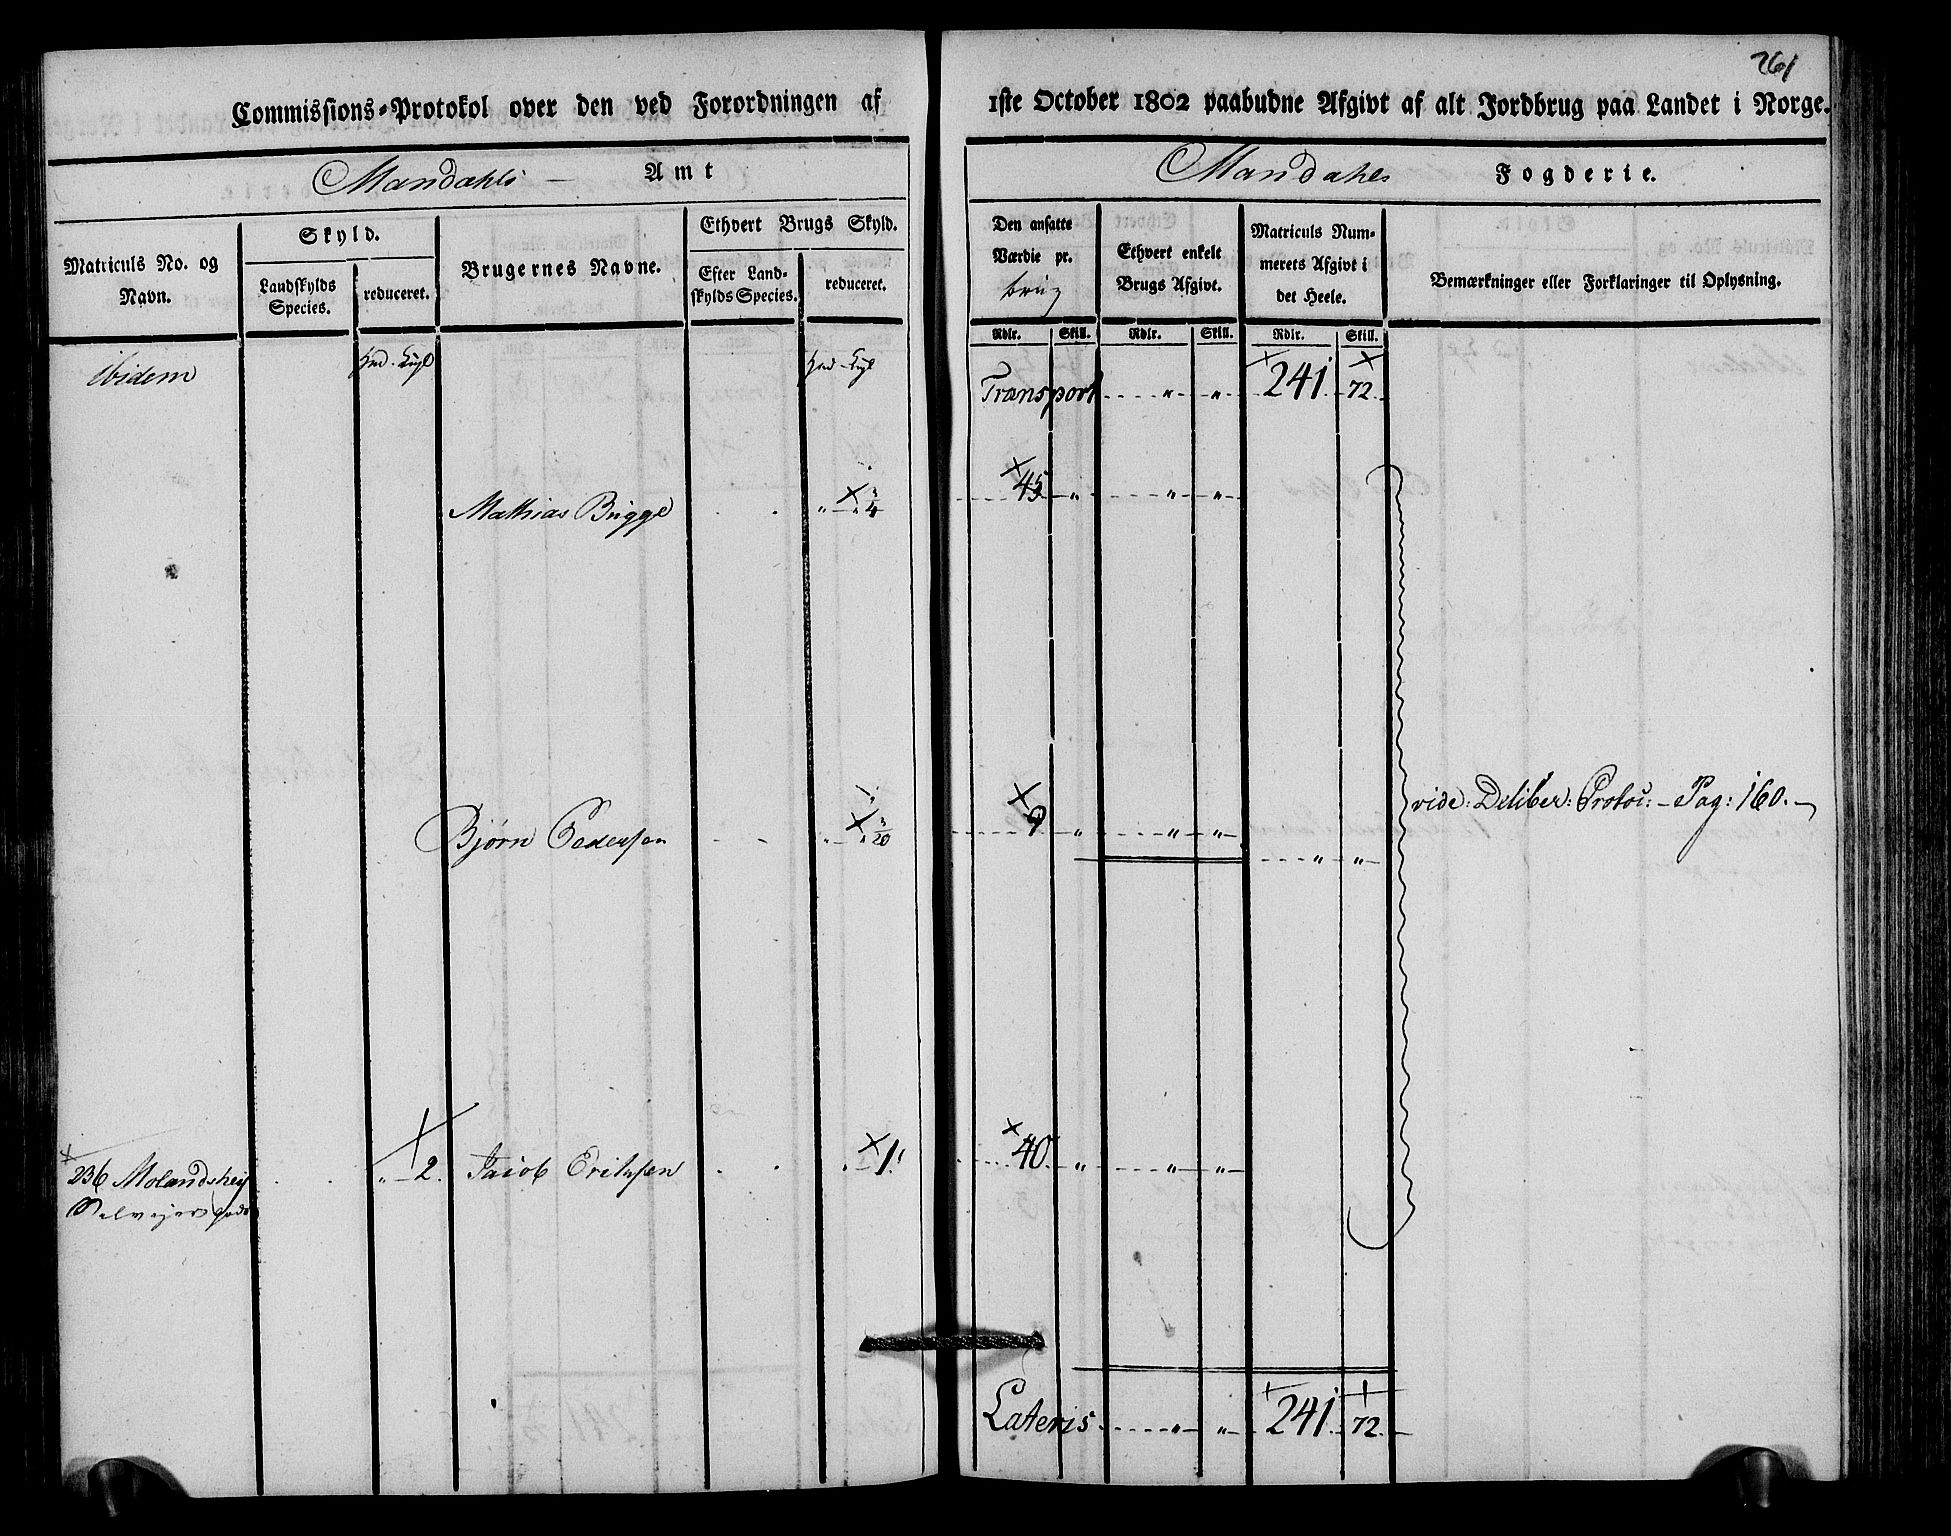 261
Commissions-Protokol over den ved Forordningen af 1ste October 1802 paabudne Afgivt af alt Jordbrug paa Landet i Norge.
Mandahls — Amt
Mandahls Fogderie.
Matriculs No. og Navn.
Skyld.
Landskylds Species.
reduceret.
Brugernes Navne.
Ethvert Brugs Skyld.
Efter Landskylds Species.
reduceret.
Den ansatte Værdie pr. brug
Ethvert enkelt Brugs Afgivt.
Matriculs Nummerets Afgivt i det Heele.
Bemærkninger eller Forklaringer til Oplysning.
Rdlr. Skill. Rdlr. Skill. Rdlr. Skill.
ibidem
Transport " " 241 72
Mathias Brigge " 3/4 45 " " "
vide: Deliber: Protoc: - Pag: 160.
Bjørn Pedersen " " 3/20 9 " " "
" "
236 Molandshei " 2. Jacob Erichsen " 1. 40 " " "
Selvejergods
Lateris " " 241 72